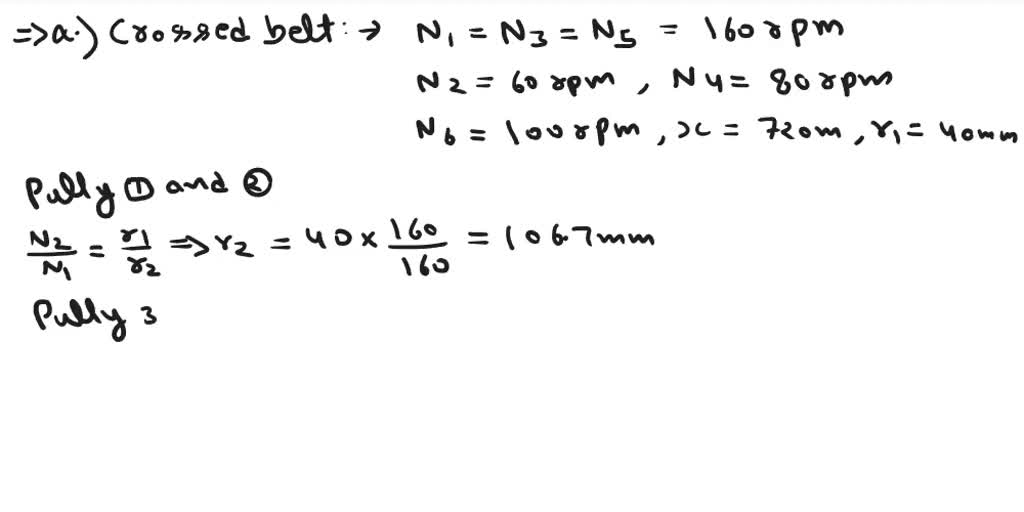 => a.) Crossed belt: → N₁ = N₃ = N₅ = 160 rpm
N₂ = 60 rpm , N₄ = 80 rpm
N₆ = 100 rpm , x = 720m , r₁ = 40mm
Pully ① and ②
N₂/N₁ = r₁/r₂ => r₂ = 40 × 160/160 = 106.7mm
Pully 3